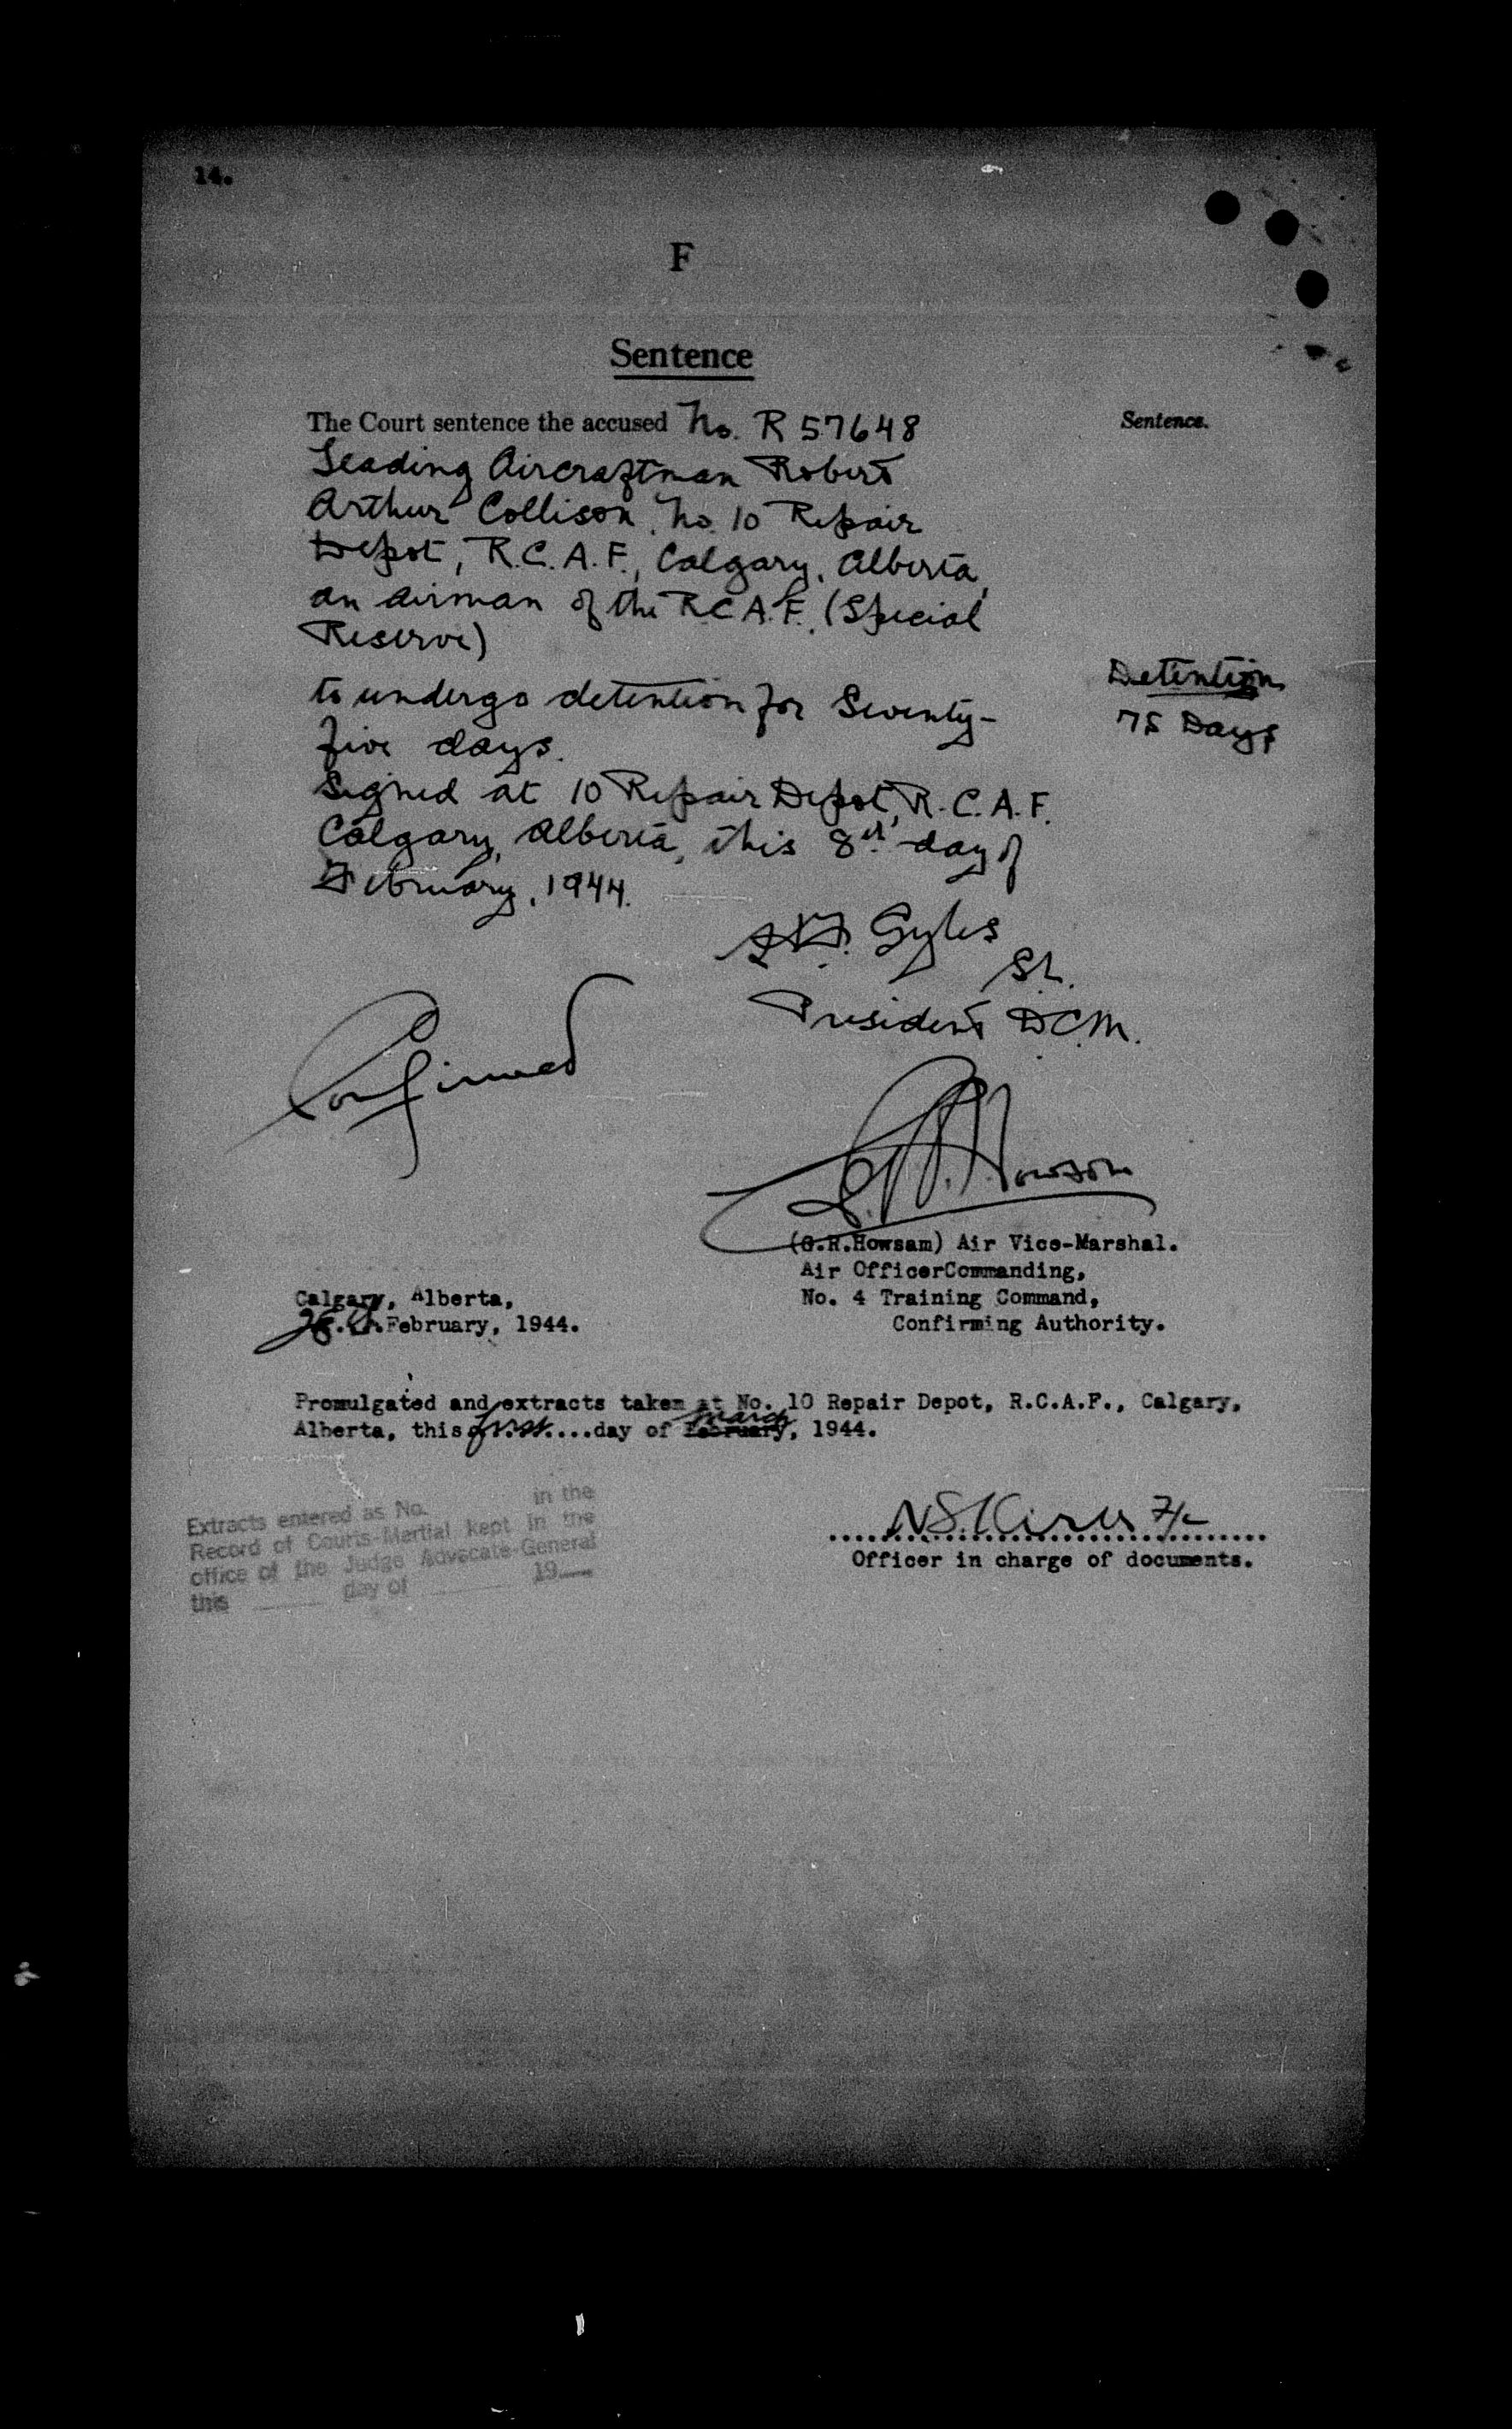 14.
F
Sentence
The Court sentence the accused No. R 57648
Leading Aircraftman Robert
Arthur Collison, No. 10 Repair
Depot, R.C.A.F., Calgary, Alberta,
an airman of the R.C.A.F. (Special
Reserve)
to undergo detention for Seventy-
five days.
Signed at 10 Repair Depot, R.C.A.F.
Calgary, Alberta, this 8th day of
February, 1944.
Sentence.
Detention
75 Days
Gyles
S/L.
President D.C.M.
Confirmed
G.R. Howsam
(G.R.Howsam) Air Vice-Marshal.
Air OfficerCommanding,
No. 4 Training Command,
Confirming Authority.
Calgary, Alberta,
February, 1944.
Promulgated and extracts taken at No. 10 Repair Depot, R.C.A.F., Calgary,
march
Alberta, this first....day of February, 1944.
Extracts entered as No. in the
Record of Courts-Martial kept in the
office of the Judge Advocate-General
this ____ day of ____ 19__
N.S. F/L
Officer in charge of documents.